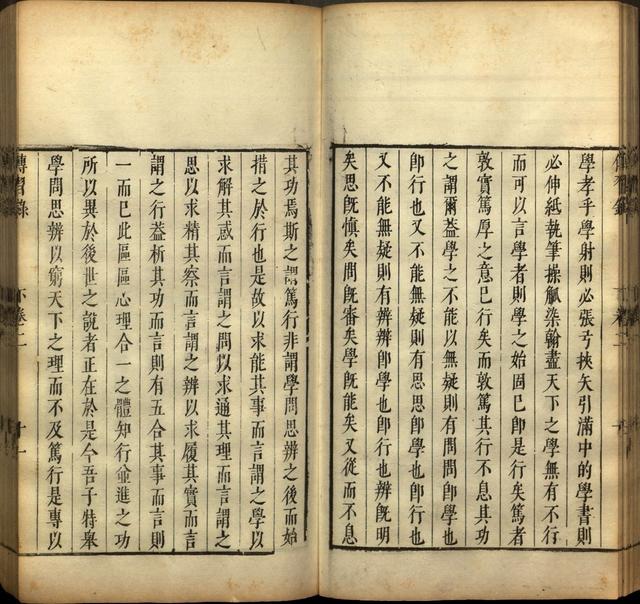 學孝乎學射則必張弓挾矢引滿中的學書則
必伸紙執筆操觚染翰盡天下之學無有不行
而可以言學者則學之始固已即是行矣篤者
敦實篤厚之意已行矣而敦篤其行不息其功
之謂爾葢學之不能以無疑則有問問即學也
即行也又不能無疑則有思思即學也即行也
又不能無疑則有辨辨即學也即行也辨既明
矣思既慎矣問既審矣學既能矣又從而不息
其功焉斯之謂篤行非謂學問思辨之後而始
措之於行也是故以求能其事而言謂之學以
求解其惑而言謂之問以求通其理而言謂之
思以求精其察而言謂之辨以求履其實而言
謂之行葢析其功而言則有五合其事而言則
一而已此區區心理合一之體知行並進之功
所以異於後世之說者正在於是今吾子特舉
學問思辨以窮天下之理而不及篤行是專以
傳習錄
下卷二
十一